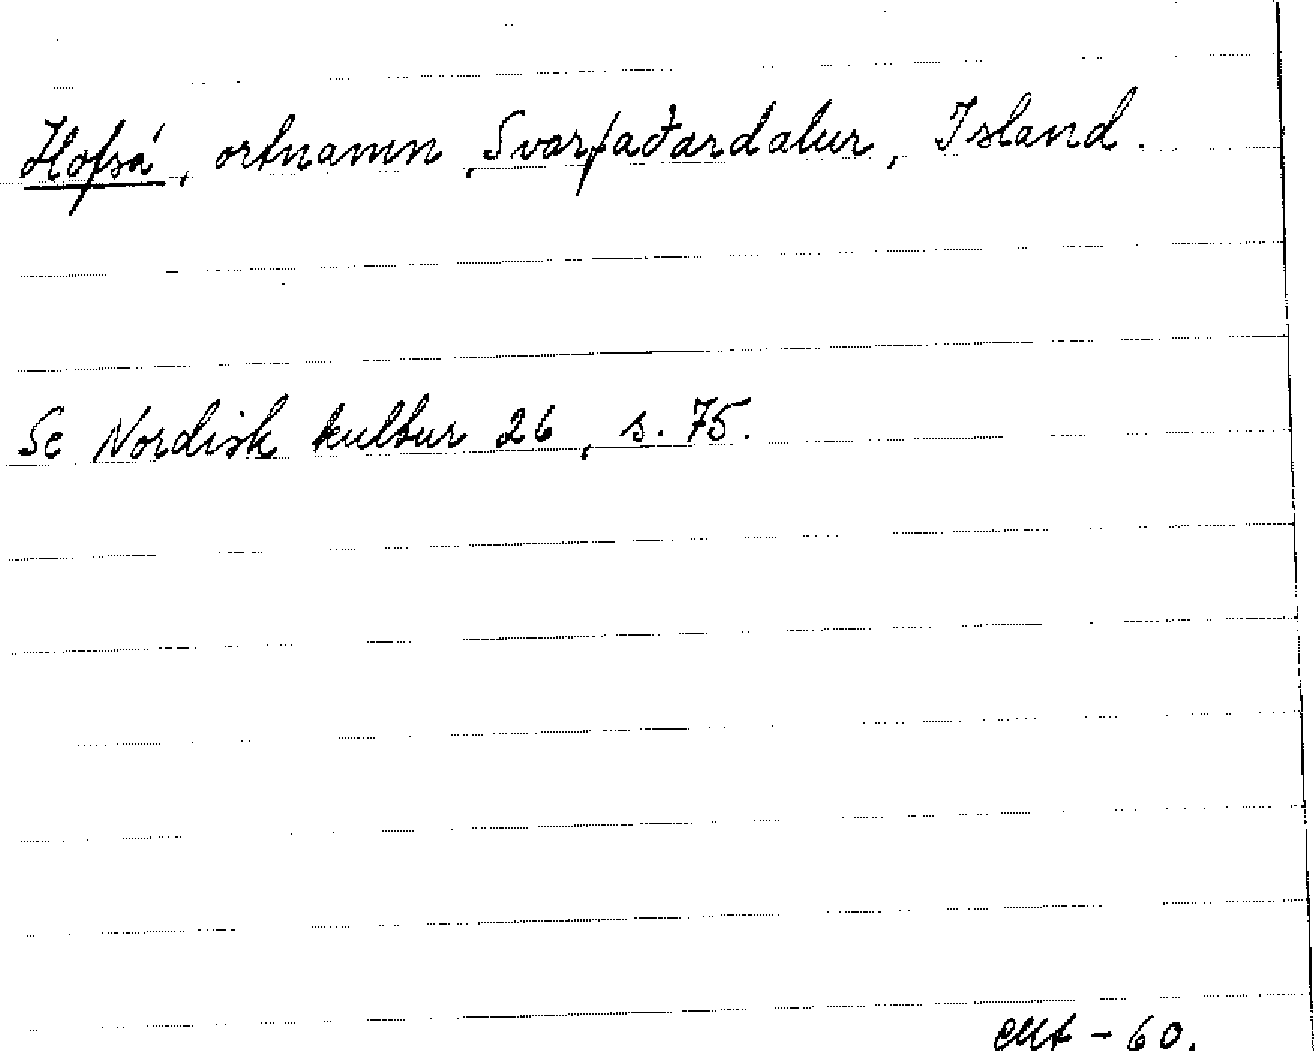 Hofsá, ortnamn, Svarfaðardalur, Island.
Se Nordisk kultur 26, s. 75.
- 60.